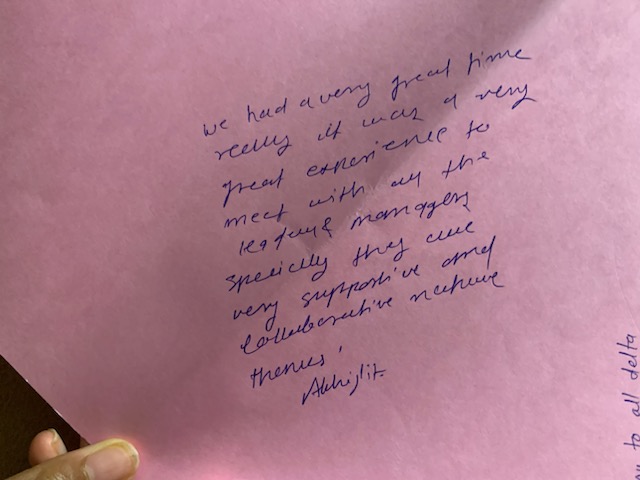 we had a very great time
really it was a very
great experience to
meet with all the
leaders managers
specially they are
very supportive and
collaborative nature
thanks,
Abhijit
to all delta